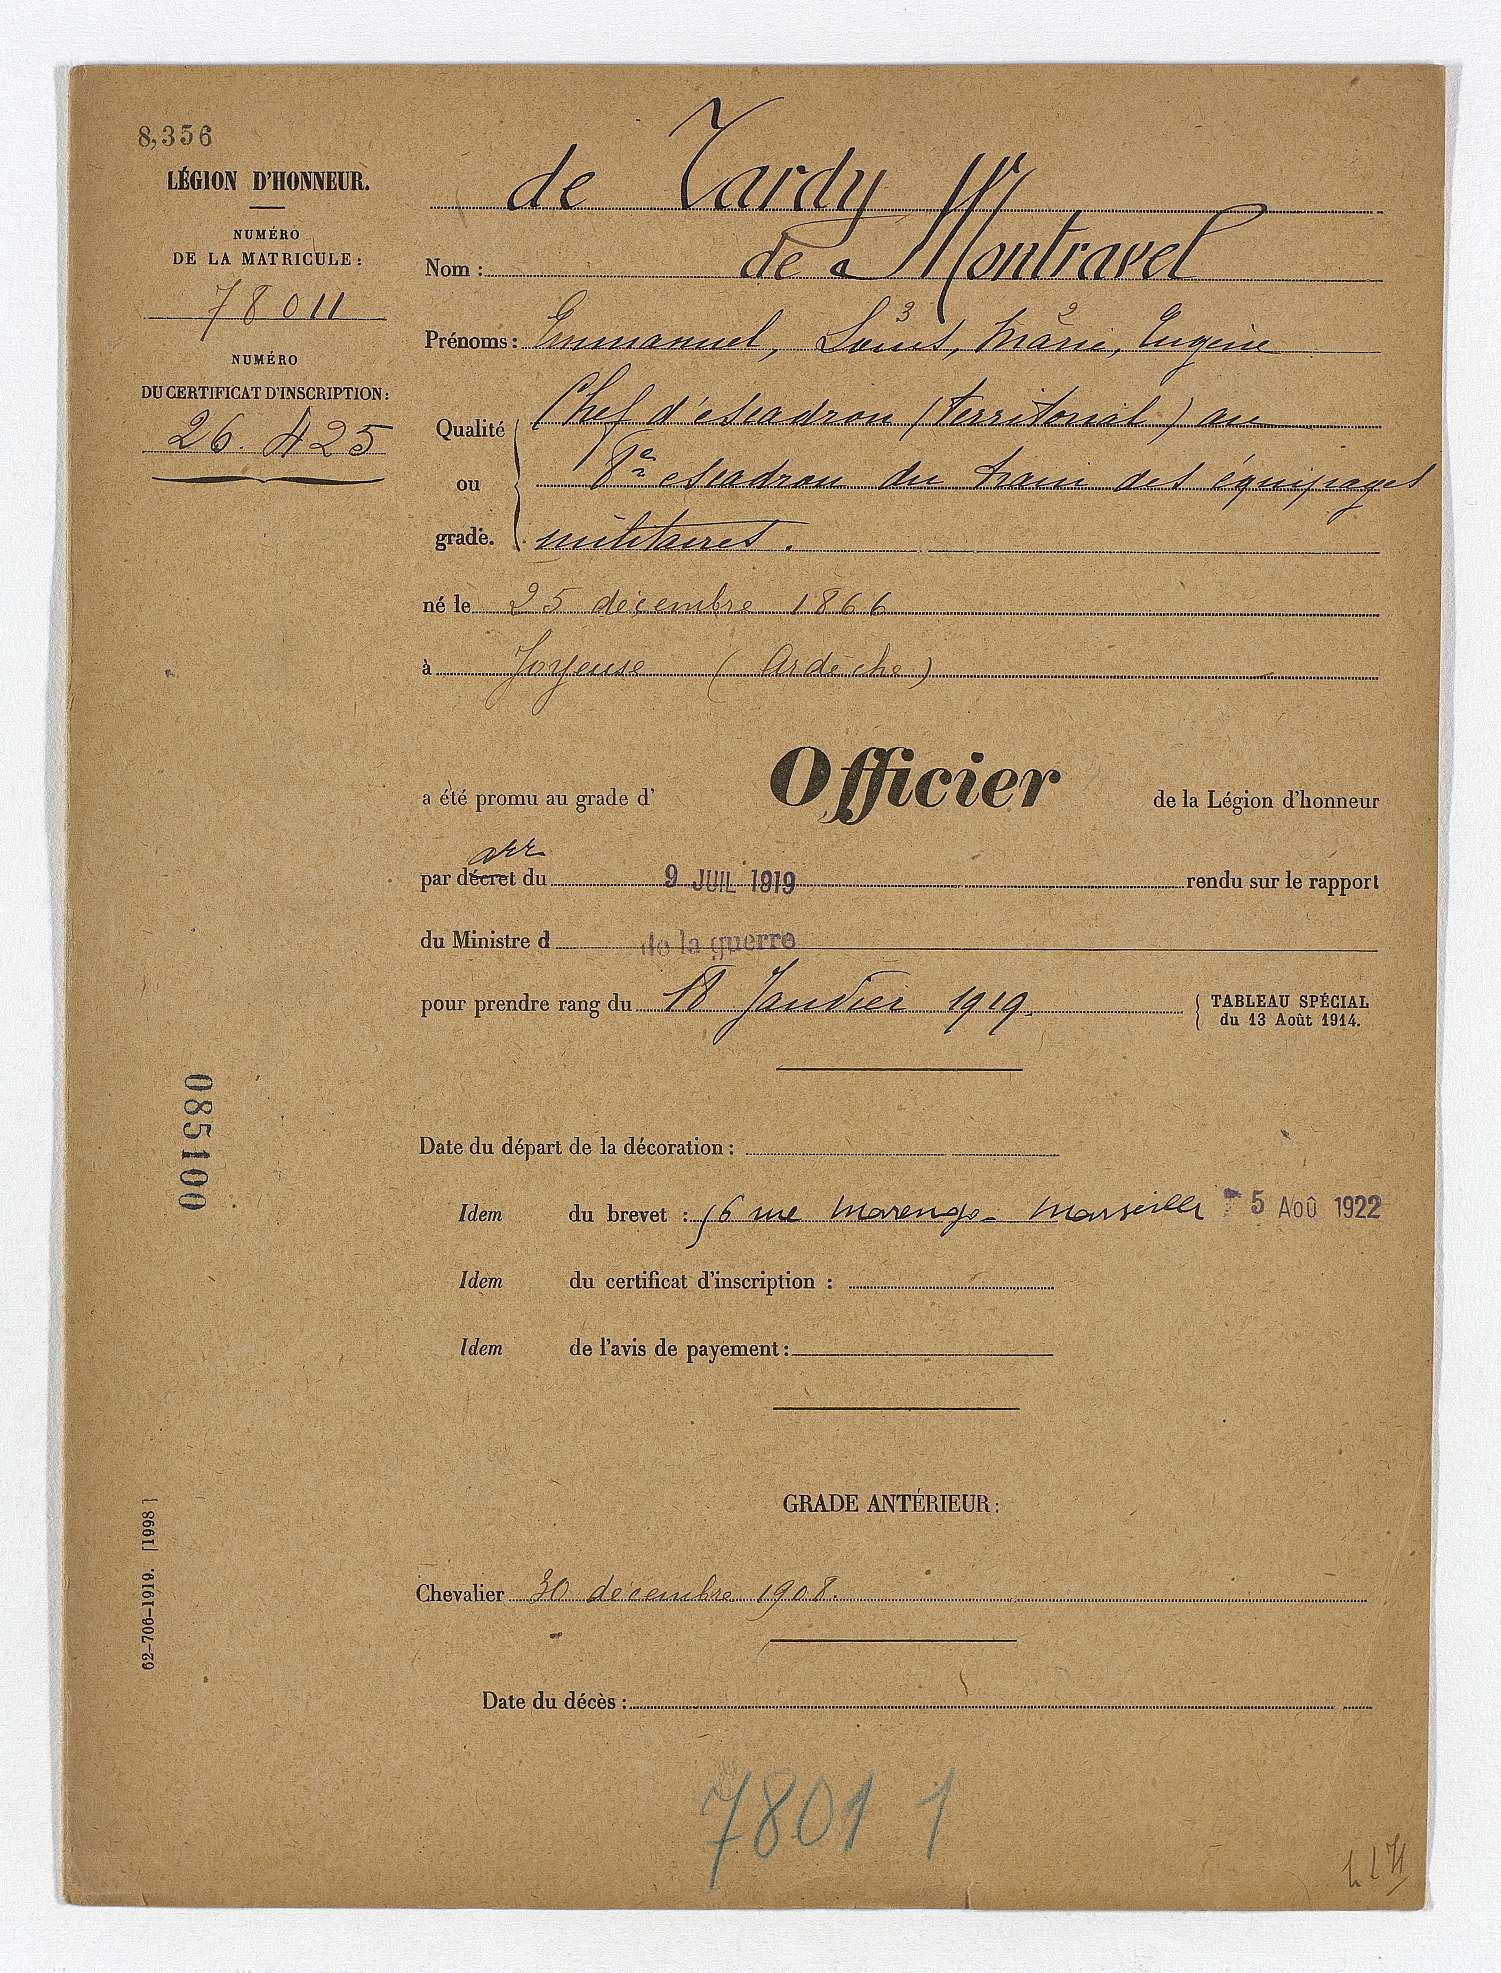 8,356
LÉGION D'HONNEUR.
NUMÉRO
DE LA MATRICULE:
78011
NUMÉRO
DU CERTIFICAT D'INSCRIPTION:
26.425
de Tardy
Nom : de Montravel
3 2
Prénoms : Emmanuel, Louis, Marie, Eugène
Qualité
ou
grade.
Chef d'escadron (territorial) au
8e escadron du train des équipages
militaires.
né le 25 décembre 1866
à Joyeuse (Ardèche)
a été promu au grade d' Officier de la Légion d'honneur
arr
par décret du 9 JUIL 1919 rendu sur le rapport
du Ministre d de la guerre
pour prendre rang du 18 Janvier 1919.
TABLEAU SPÉCIAL
du 13 Août 1914.
085100
Date du départ de la décoration :
Idem du brevet : 56 rue Marengo - Marseille 5 AOÛ 1922
Idem du certificat d'inscription :
Idem de l'avis de payement :
GRADE ANTÉRIEUR :
Chevalier 30 décembre 1908.
Date du décès :
62-706-1919. [1998]
78011